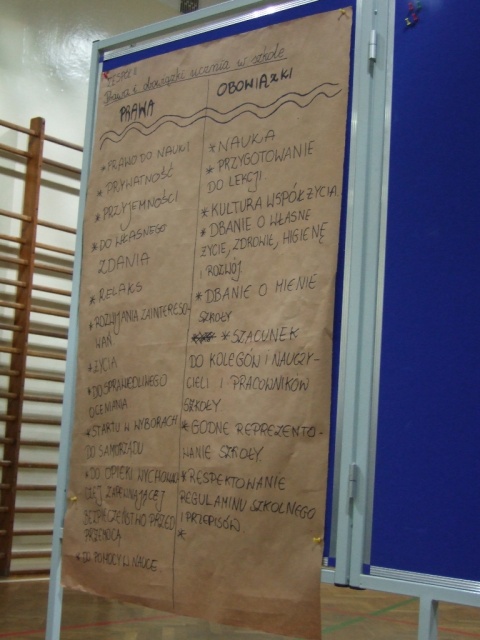 ZESPÓŁ 3
Prawa i obowiązki ucznia w szkole
PRAWA
* PRAWO DO NAUKI
* PRYWATNOŚĆ
* PRZYJEMNOŚCI
* DO WŁASNEGO
ZDANIA
* RELAKS
* ROZWIJANIA ZAINTERESO-
WAŃ
* ŻYCIA
* DO SPRAWIEDLIWEGO
OCENIANIA
* STARTU W WYBORACH
DO SAMORZĄDU
* DO OPIEKI WYCHOWAW-
CZEJ ZAPEWNIAJĄCEJ
BEZPIECZEŃSTWO PRZED
PRZEMOCĄ
* DO POMOCY W NAUCE
OBOWIĄZKI
* NAUKA
* PRZYGOTOWANIE
DO LEKCJI
* KULTURA WSPÓŁŻYCIA
* DBANIE O WŁASNE
ŻYCIE, ZDROWIE, HIGIENĘ
I ROZWÓJ
* DBANIE O MIENIE
SZKOŁY
* SZACUNEK
DO KOLEGÓW I NAUCZY-
CIELI I PRACOWNIKÓW
SZKOŁY.
* GODNE REPREZENTO-
WANIE SZKOŁY.
* RESPEKTOWANIE
REGULAMINU SZKOLNEGO
I PRZEPISÓW
*